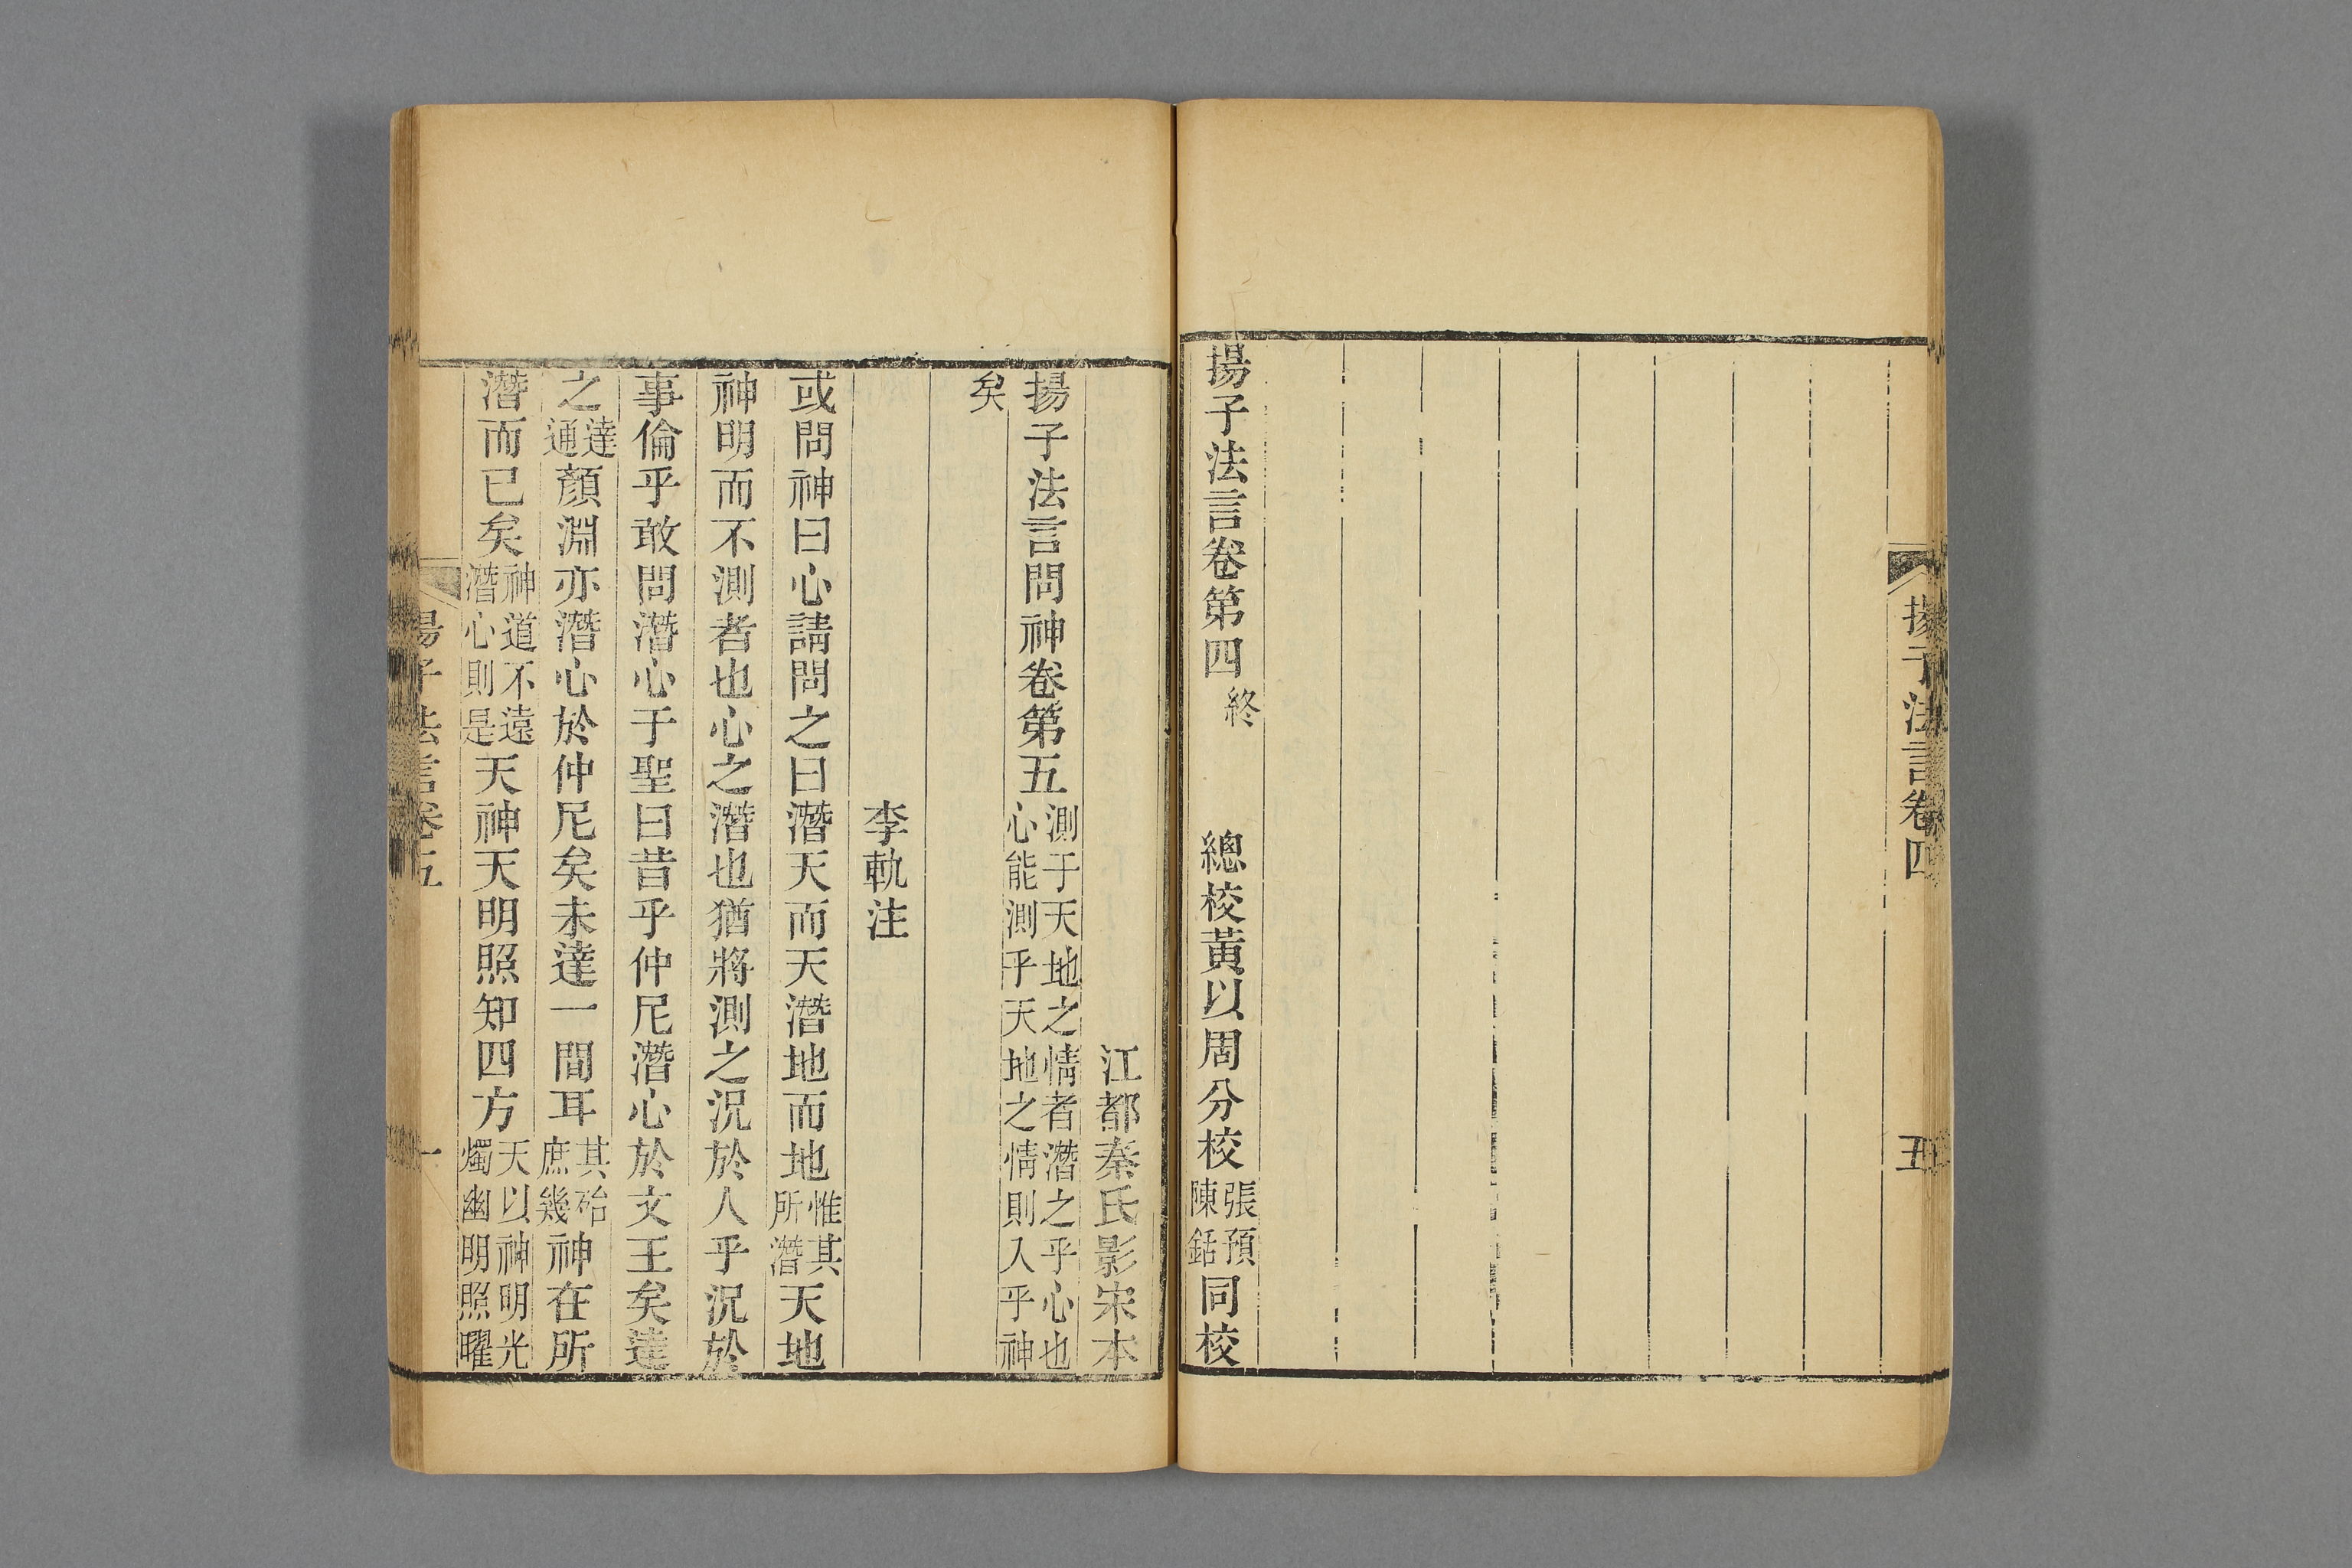 揚子法言卷四
五
揚子法言卷第四終 總校黃以周分校張預陳銛同校
江都秦氏影宋本
揚子法言問神卷第五測于天地之情者潛之乎心也心能測乎天地之情則入乎神
矣
李軌注
或問神曰心請問之曰潛天而天潛地而地惟其所潛天地
神明而不測者也心之潛也猶將測之況於人乎況於
事倫乎敢問潛心于聖曰昔乎仲尼潛心於文王矣達
之達通顏淵亦潛心於仲尼矣未達一間耳其殆庶幾神在所
潛而已矣神道不遠潛心則是天神天明照知四方天以神明光燭幽明照曜
揚子法言卷五
一